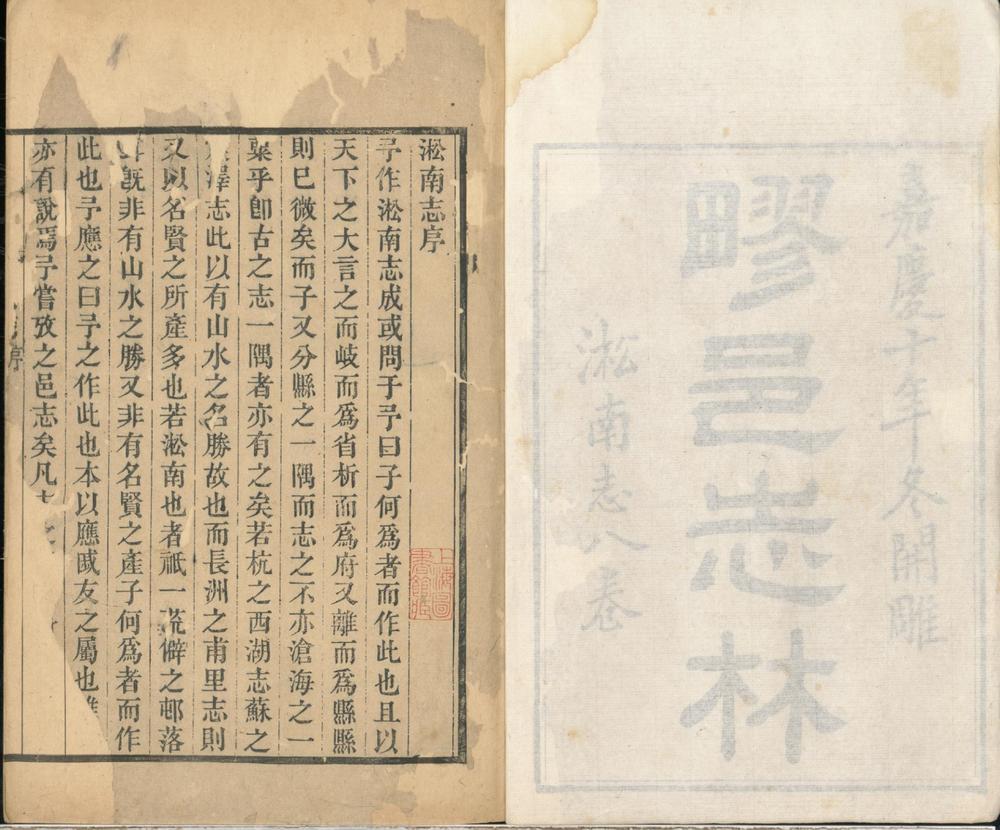 嘉慶十年冬開雕
疁邑志林
淞南志八卷
淞南志序
予作淞南志成或問于予曰子何爲者而作此也且以
天下之大言之而岐而爲省析而爲府又離而爲縣縣
則已微矣而子又分縣之一隅而志之不亦滄海之一
粟乎卽古之志一隅者亦有之矣若杭之西湖志蘇之
澤志此以有山水之名勝故也而長洲之甫里志則
又以名賢之所產多也若淞南也者祗一荒僻之邨落
旣非有山水之勝又非有名賢之產子何爲者而作
此也予應之曰予之作此也本以應戚友之屬也雖
亦有說焉予嘗攷之邑志矣凡
序
上海圖書館藏